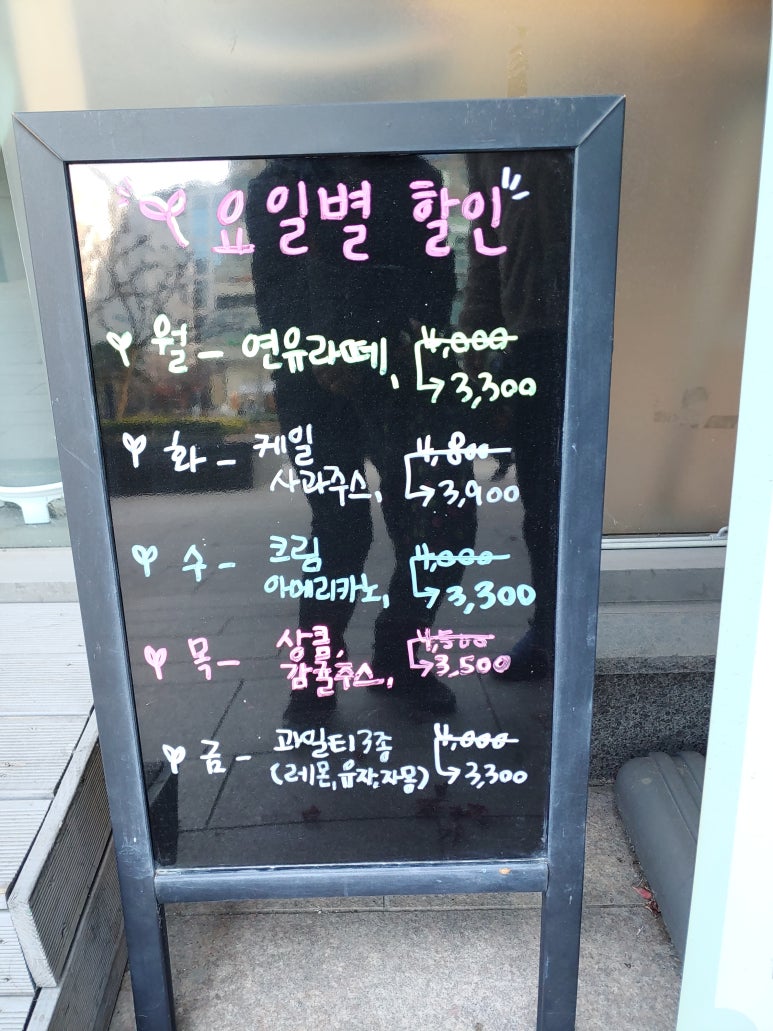 요일별 할인
월 - 연유라떼, 4,000
→ 3,300
화 - 케일 4,800
사과주스, → 3,900
수 - 크림 4,000
아메리카노, → 3,300
목 - 상큼, 4,500
감귤주스, → 3,500
금 - 과일티 3종 4,000
(레몬, 유자, 자몽) → 3,300